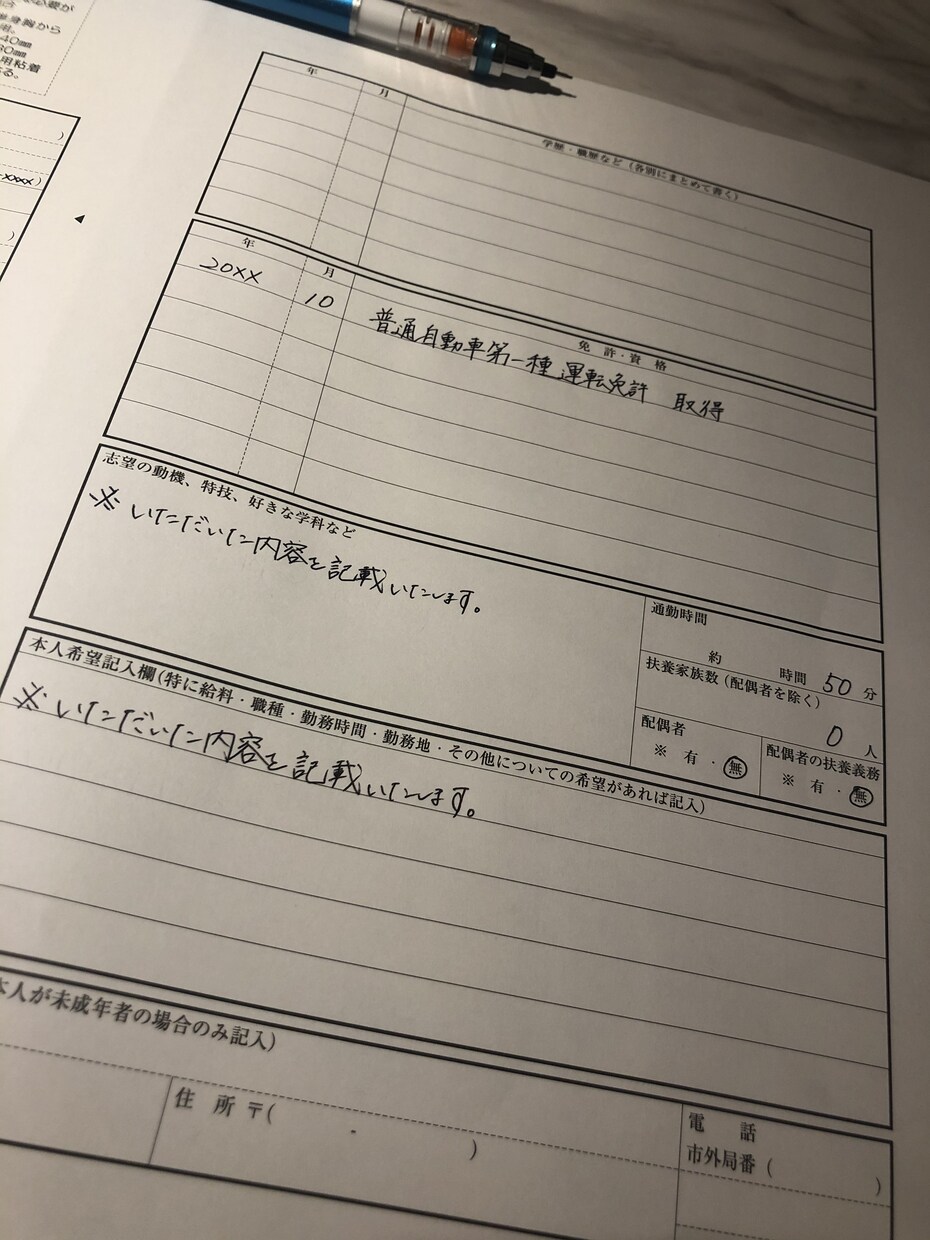 必要が
単身胸から
40mm
30mm
用粘着
る。
)
xxxx)
)
年 月 学歴・職歴など(各別にまとめて書く)
年 月 免許・資格
20XX 10 普通自動車第一種運転免許 取得
志望の動機、特技、好きな学科など
※いただいた内容を記載いたします。
通勤時間
約 時間 50 分
扶養家族数(配偶者を除く)
0 人
配偶者
※ 有・無
配偶者の扶養義務
※ 有・無
本人希望記入欄(特に給料・職種・勤務時間・勤務地・その他についての希望があれば記入)
※いただいた内容を記載いたします。
本人が未成年者の場合のみ記入)
住 所 〒( - )
電 話
市外局番( )